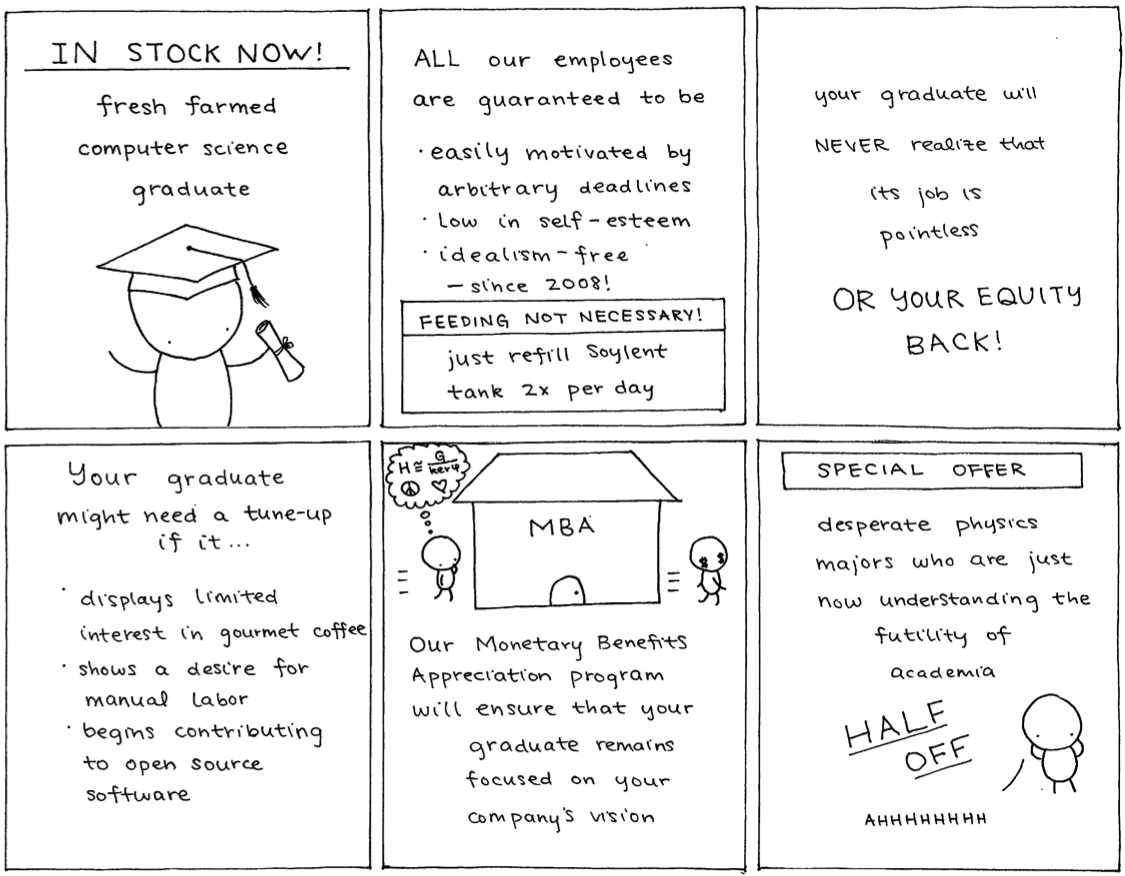 IN STOCK NOW!
fresh farmed
computer science
graduate
ALL our employees
are guaranteed to be
· easily motivated by
arbitrary deadlines
· Low in self-esteem
· idealism-free
- since 2008!
FEEDING NOT NECESSARY!
just refill Soylent
tank 2x per day
your graduate will
NEVER realize that
its job is
pointless
OR YOUR EQUITY
BACK!
Your graduate
might need a tune-up
if it...
· displays limited
interest in gourmet coffee
· shows a desire for
manual labor
· begins contributing
to open source
software
H ≅ G/kerφ
MBA
$ $
Our Monetary Benefits
Appreciation program
will ensure that your
graduate remains
focused on your
company's vision
SPECIAL OFFER
desperate physics
majors who are just
now understanding the
futility of
academia
HALF
OFF
AHHHHHHHH